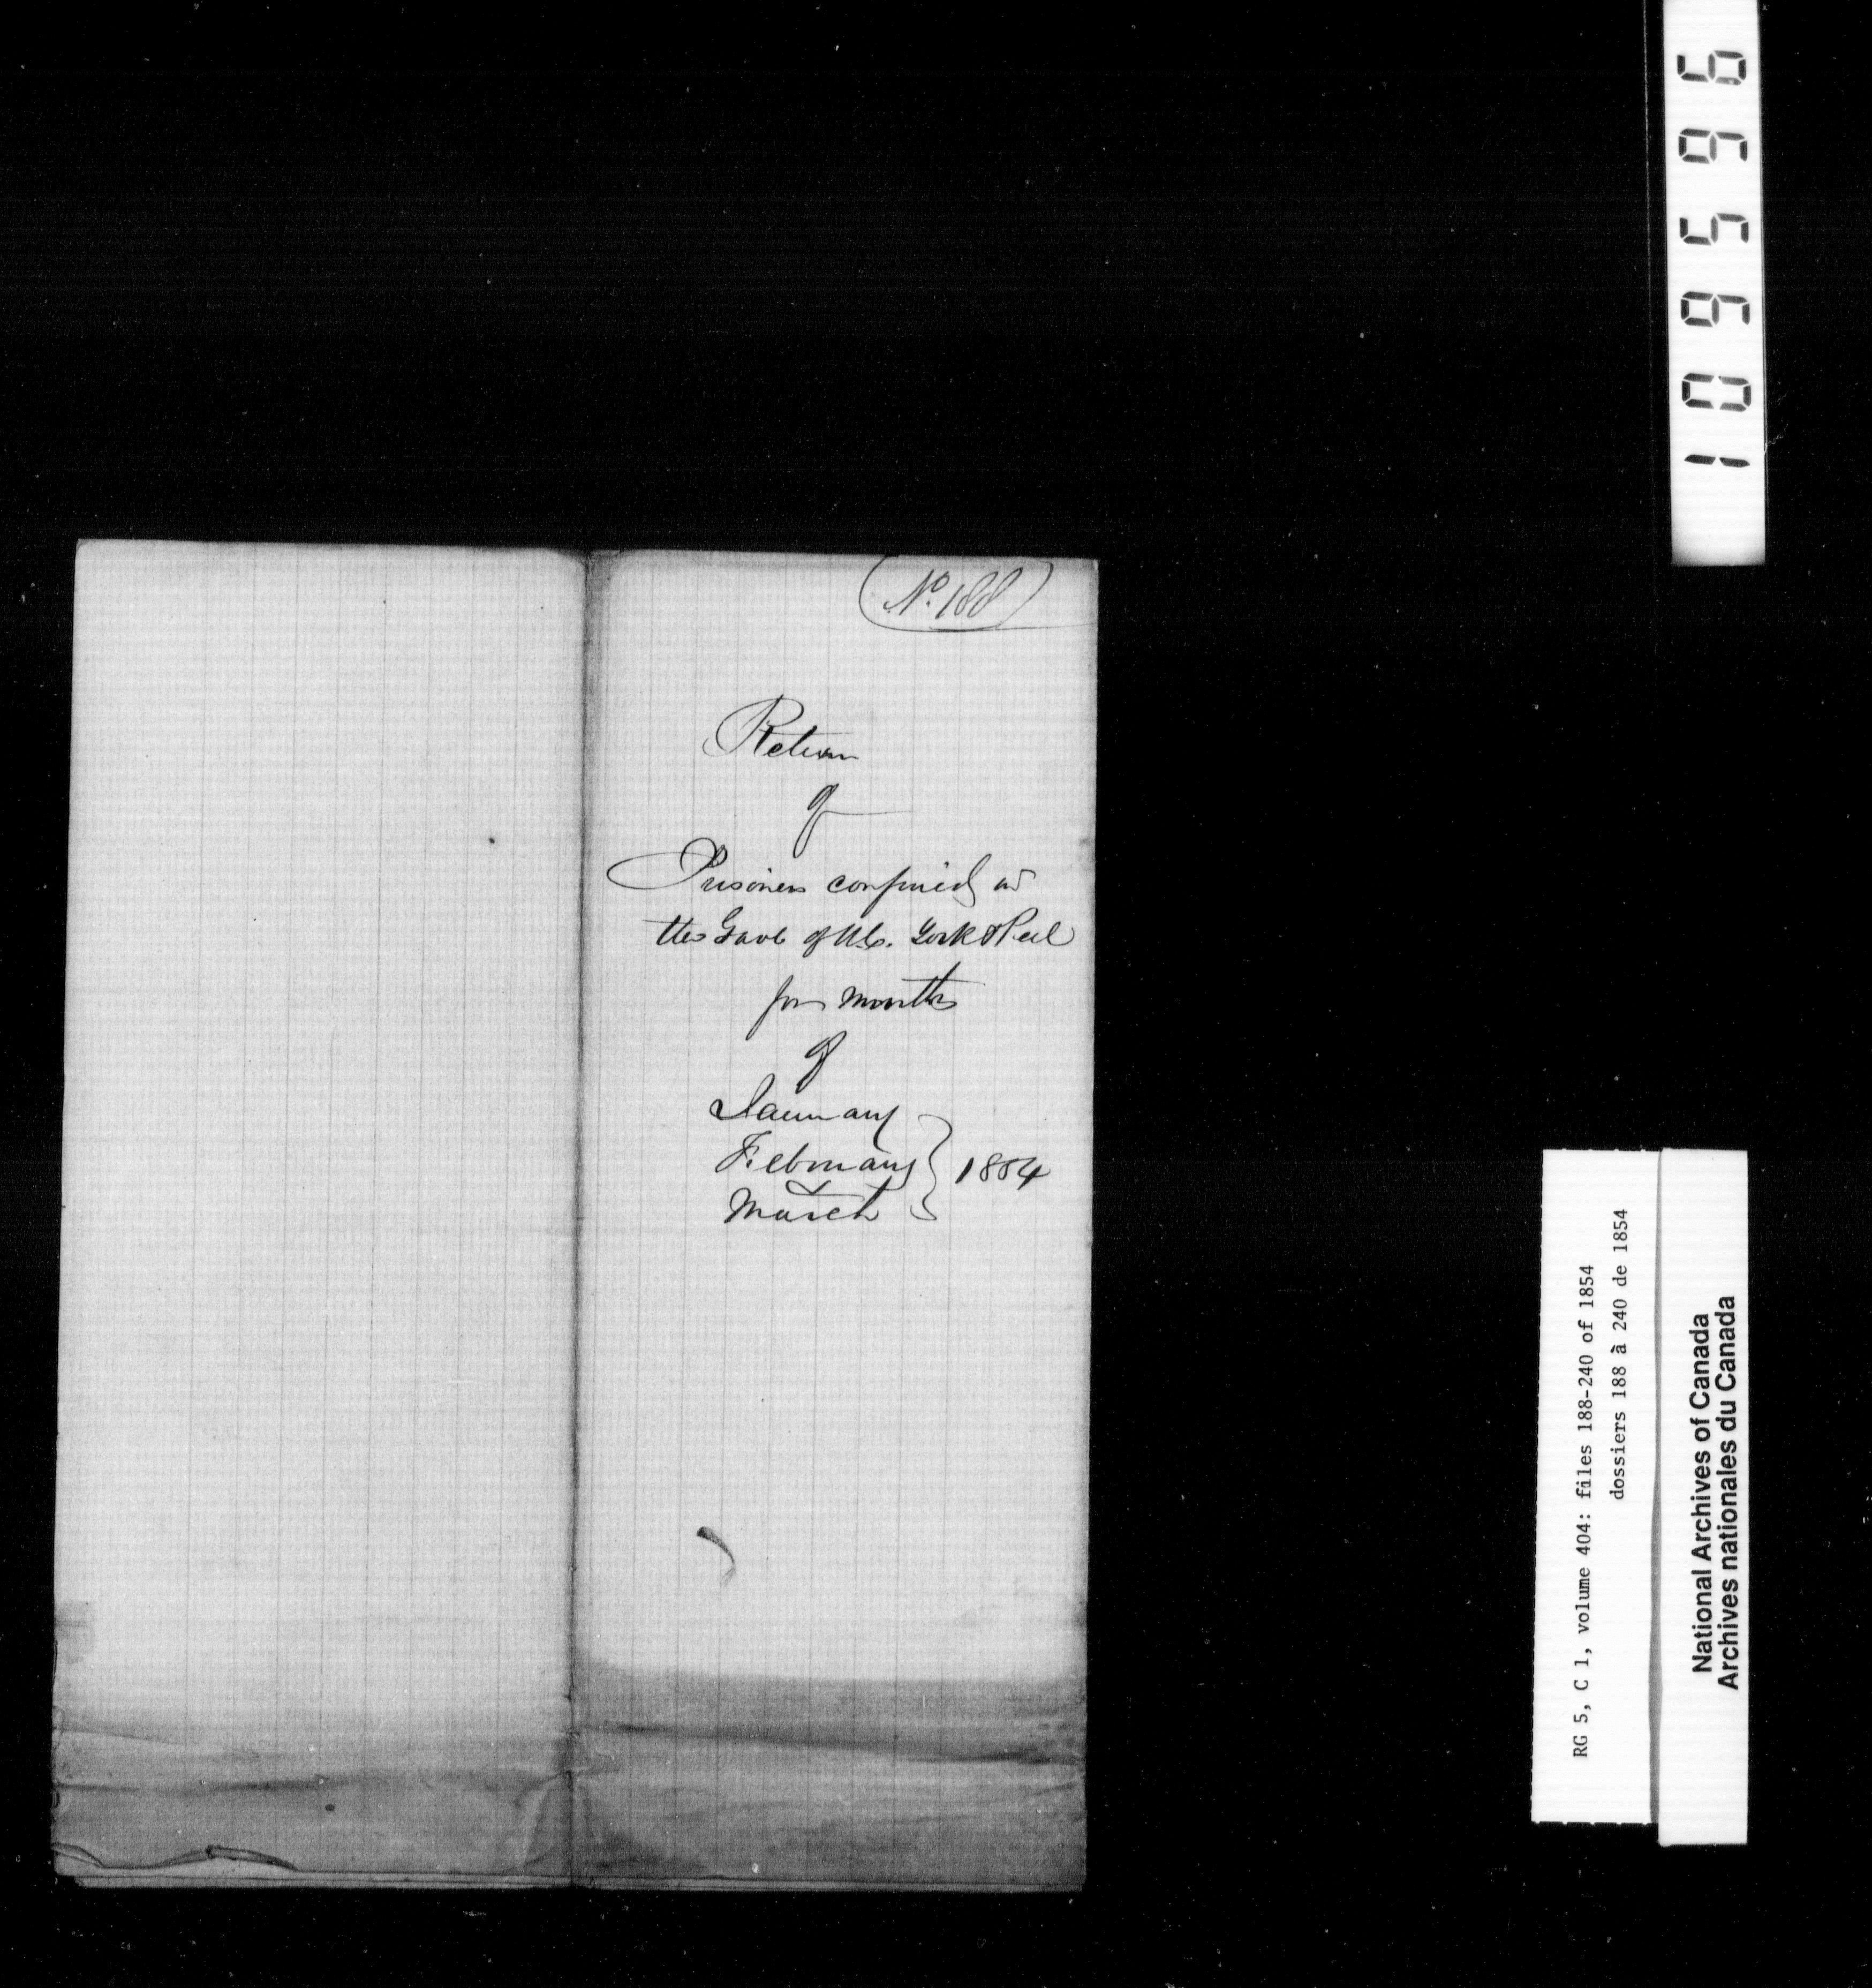 No. 188
Return
of
Prisoners confined in
the Gaol of U.C. York & Peel
for months
of
January
February
March } 1854
1095696
RG 5, C 1, volume 404: files 188-240 of 1854
dossiers 188 à 240 de 1854
National Archives of Canada
Archives nationales du Canada